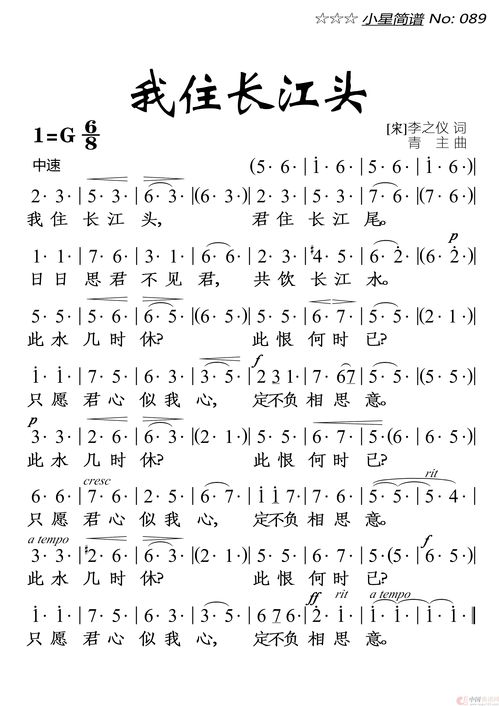 ☆☆☆ 小星简谱 No: 089
我住长江头
1=G 6/8
[宋]李之仪 词
青 主 曲
中速
(5· 6· | i· 6· | 5· 6· | i· 6·)|
2· 3· | 5· 3· | 6· 3· |(6· 3·)| 2· 3· | 5· 3· | 7· 6· |(7· 6·)|
我 住 长 江 头, 君 住 长 江 尾。
p
1· 1· | 7· 6· | 3· 1· | 6· 6· | 2· 3· | #4· 5· | 6· 2· |(6· 2·)|
日 日 思 君 不 见 君, 共 饮 长 江 水。
5· 5· | 5· 6· | 6· 5· |(6· 5·)| 5· 5· | 6· 7· | 5· 5· |(2· 1·)|
此 水 几 时 休? 此 恨 何 时 已?
f
i· i· | 7· 5· | 6· 3· | 3· 5· | 2 3 1· | 7· 67 | 5· 5· |(5· 5·)|
只 愿 君 心 似 我 心, 定不负 相 思 意。
p
3· 3· | 2· 6· | 6· 3· |(2· 1·)| 5· 5· | 6· 7· | 5· (6· | 6· 5·)|
此 水 几 时 休? 此 恨 何 时 已?
cresc rit
6· 6· | 7· 6· | 2· 5· | 6· 7· | i i 7· | 7· 6· | 5· 5· | 5· 4· |
只 愿 君 心 似 我 心, 定不负 相 思 意。
a tempo f
3· 3· | #2· 6· | 6· 3· |(2· 1·)| 5· 5· | 6· 3· | 5· (5· | 6· 5·)|
此 水 几 时 休? 此 恨 何 时 已?
ff rit a tempo
i· i· | 7· 5· | 6· 3· | 3· 5· | 6 7 6· | 2· i· | i· i· | i· i· ‖
只 愿 君 心 似 我 心, 定不负 相 思 意。